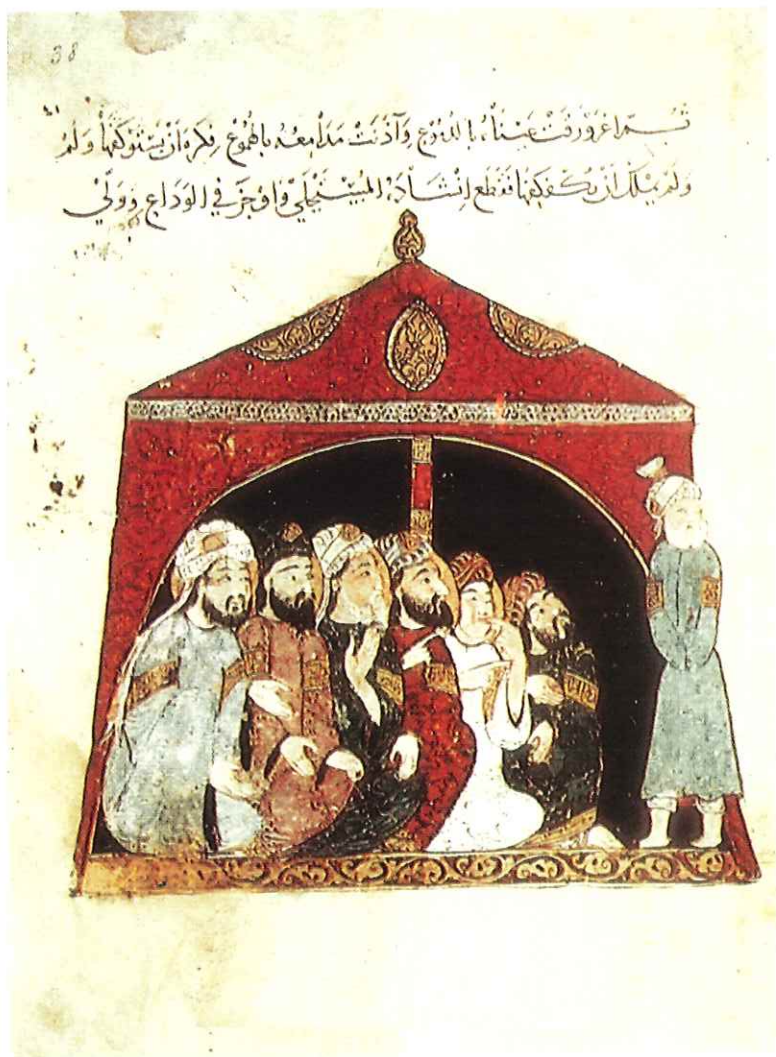 38
ثُمَّ اغْرَوْرَقَتْ عَيْنَاهُ بِالدُّمُوعِ وَآذَنَتْ مَدَامِعُهُ بِالْهُمُوعِ فَكَرِهَ أَنْ يَسْتَوْكِفَهَا وَلَمْ
وَلَمْ يَمْلِكْ أَنْ يُكَفْكِفَهَا فَقَطَعَ إِنْشَادَهُ الْمُسْتَحْلَى وَأَوْجَزَ فِي الْوَدَاعِ وَوَلَّى